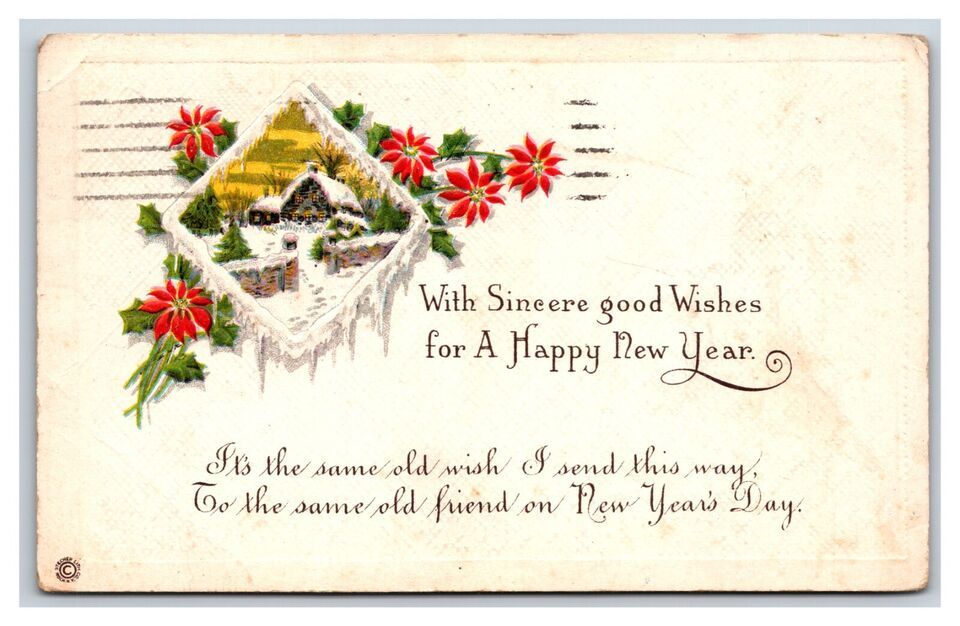 With Sincere good Wishes
for A Happy New Year.
It's the same old wish I send this way,
To the same old friend on New Year's Day.
©